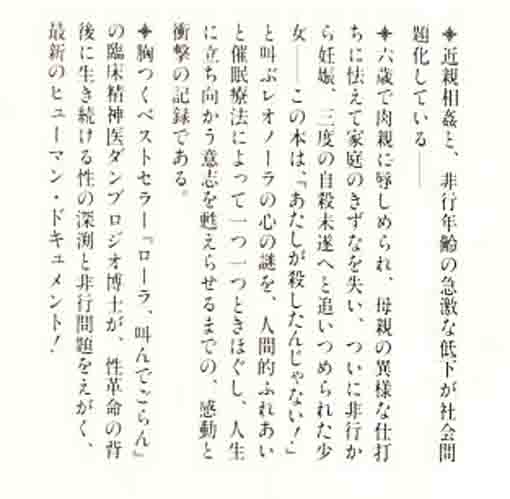 ◆近親相姦と、非行年齢の急激な低下が社会問
題化している——
◆六歳で肉親に辱しめられ、母親の異様な仕打
ちに怯えて家庭のきずなを失い、ついに非行か
ら妊娠、三度の自殺未遂へと追いつめられた少
女——この本は、「あたしが殺したんじゃない！」
と叫ぶレオノーラの心の謎を、人間的ふれあい
と催眠療法によって一つ一つときほぐし、人生
に立ち向かう意志を甦えらせるまでの、感動と
衝撃の記録である。
◆胸つくベストセラー『ローラ、叫んでごらん』
の臨床精神医ダンブロジオ博士が、性革命の背
後に生き続ける性の深渕と非行問題をえがく、
最新のヒューマン・ドキュメント！